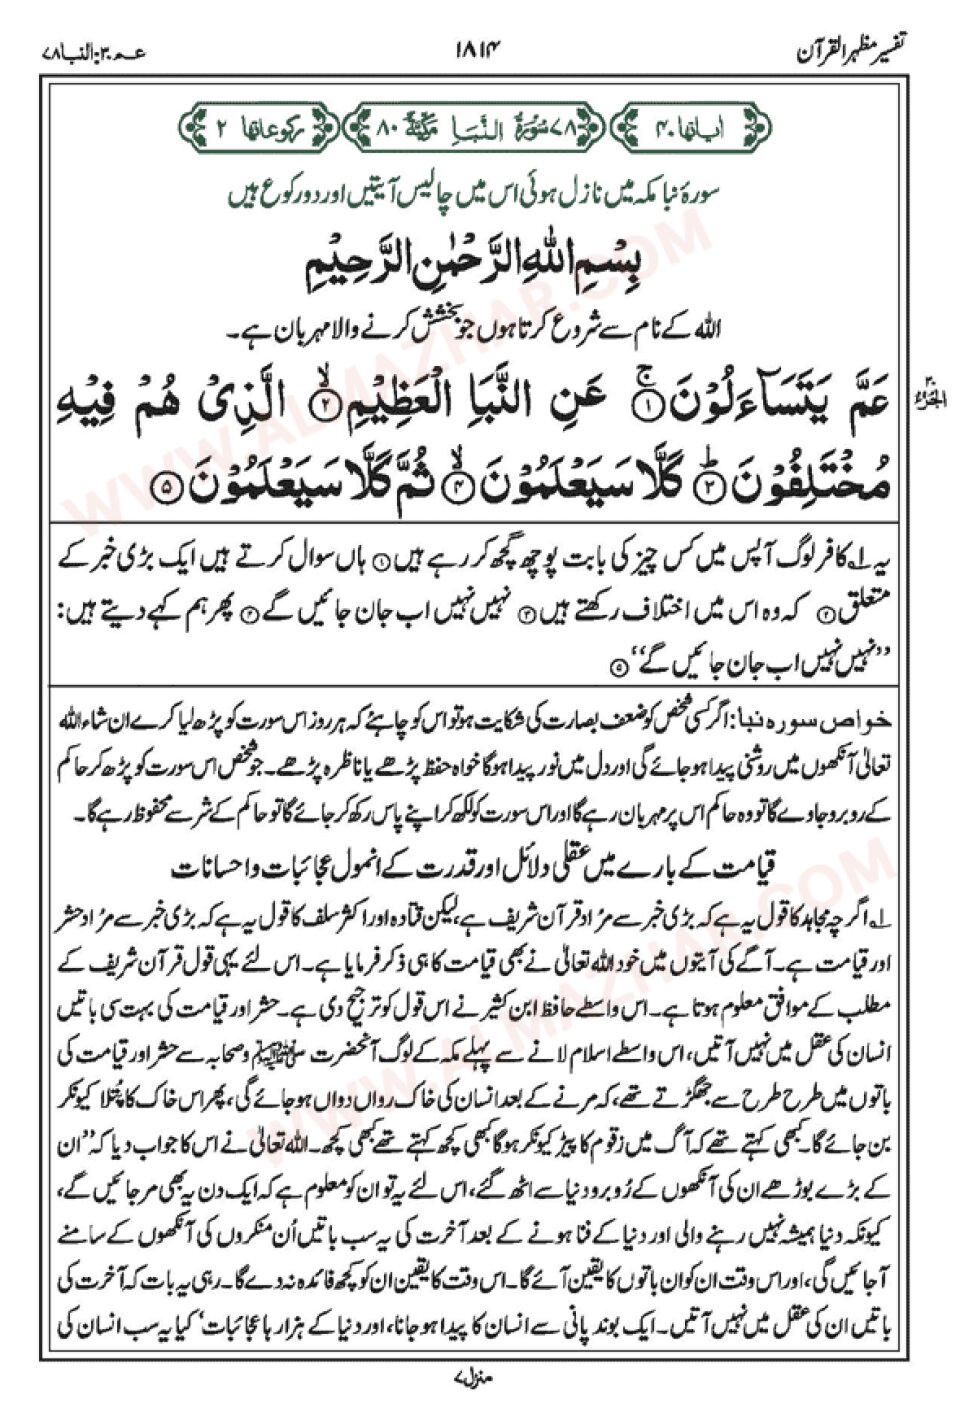 تفسیر مظہر القرآن ۱۸۱۴ عم ۳۰: النبا ۷۸
اٰیاتها ۴۰ ۷۸ سُوْرَةُ النَّبَاِ مَكِّيَّةٌ ۸۰ رکوعاتها ۲
سورۂ نبا مکہ میں نازل ہوئی اس میں چالیس آیتیں اور دو رکوع ہیں
بِسْمِ اللهِ الرَّحْمٰنِ الرَّحِيْمِ
اللہ کے نام سے شروع کرتا ہوں جو بخشش کرنے والا مہربان ہے۔
عَمَّ يَتَسَآءَلُوْنَ ۚ‏﴿۱﴾ عَنِ النَّبَاِ الْعَظِيْمِ ۙ‏﴿۲﴾ الَّذِىْ هُمْ فِيْهِ
الجزء ۳۰
مُخْتَلِفُوْنَ ؕ‏﴿۳﴾ كَلَّا سَيَعْلَمُوْنَ ۙ‏﴿۴﴾ ثُمَّ كَلَّا سَيَعْلَمُوْنَ ﴿۵﴾
یہ ۱؎ کافر لوگ آپس میں کس چیز کی بابت پوچھ گچھ کر رہے ہیں ﴿۱﴾ ہاں سوال کرتے ہیں ایک بڑی خبر کے
متعلق ﴿۲﴾ کہ وہ اس میں اختلاف رکھتے ہیں ﴿۳﴾ نہیں نہیں اب جان جائیں گے ﴿۴﴾ پھر ہم کہے دیتے ہیں:
”نہیں نہیں اب جان جائیں گے“ ﴿۵﴾
خواص سورہ نبا: اگر کسی شخص کو ضعف بصارت کی شکایت ہو تو اس کو چاہئے کہ ہر روز اس سورت کو پڑھ لیا کرے ان شاء اللہ
تعالیٰ آنکھوں میں روشنی پیدا ہو جائے گی اور دل میں نور پیدا ہوگا خواہ حفظ پڑھے یا ناظرہ پڑھے۔ جو شخص اس سورت کو پڑھ کر حاکم
کے روبرو جاوے گا تو وہ حاکم اس پر مہربان رہے گا اور اس سورت کو لکھ کر اپنے پاس رکھ کر جائے گا تو حاکم کے شر سے محفوظ رہے گا۔
قیامت کے بارے میں عقلی دلائل اور قدرت کے انمول عجائبات و احسانات
۱؎ اگرچہ مجاہد کا قول یہ ہے کہ بڑی خبر سے مراد قرآن شریف ہے، لیکن قتادہ اور اکثر سلف کا قول یہ ہے کہ بڑی خبر سے مراد حشر
اور قیامت ہے۔ آگے کی آیتوں میں خود اللہ تعالیٰ نے بھی قیامت کا ہی ذکر فرمایا ہے۔ اس لئے یہی قول قرآن شریف کے
مطلب کے موافق معلوم ہوتا ہے۔ اس واسطے حافظ ابن کثیر نے اس قول کو ترجیح دی ہے۔ حشر اور قیامت کی بہت سی باتیں
انسان کی عقل میں نہیں آتیں، اس واسطے اسلام لانے سے پہلے مکہ کے لوگ آنحضرت ﷺ و صحابہ سے حشر اور قیامت کی
باتوں میں طرح طرح سے جھگڑتے تھے، کہ مرنے کے بعد انسان کی خاک رواں دواں ہو جائے گی، پھر اس خاک کا پُتلا کیونکر
بن جائے گا۔ کبھی کہتے تھے کہ آگ میں زقوم کا پیڑ کیونکر ہوگا کبھی کچھ کہتے تھے کبھی کچھ۔ اللہ تعالیٰ نے اس کا جواب دیا کہ ”ان
کے بڑے بوڑھے ان کی آنکھوں کے رُوبرو دنیا سے اٹھ گئے، اس لئے یہ تو ان کو معلوم ہے کہ ایک دن یہ بھی مر جائیں گے،
کیونکہ دنیا ہمیشہ نہیں رہنے والی اور دنیا کے فنا ہونے کے بعد آخرت کی یہ سب باتیں اُن منکروں کی آنکھوں کے سامنے
آجائیں گی، اور اس وقت ان کو ان باتوں کا یقین آئے گا۔ اس وقت کا یقین ان کو کچھ فائدہ نہ دے گا۔ رہی یہ بات کہ آخرت کی
باتیں ان کی عقل میں نہیں آتیں۔ ایک بوند پانی سے انسان کا پیدا ہو جانا، اور دنیا کے ہزار ہا عجائبات‘ کیا یہ سب انسان کی
منزل ۷
WWW.ALMAZHAR.COM
WWW.ALMAZHAR.COM